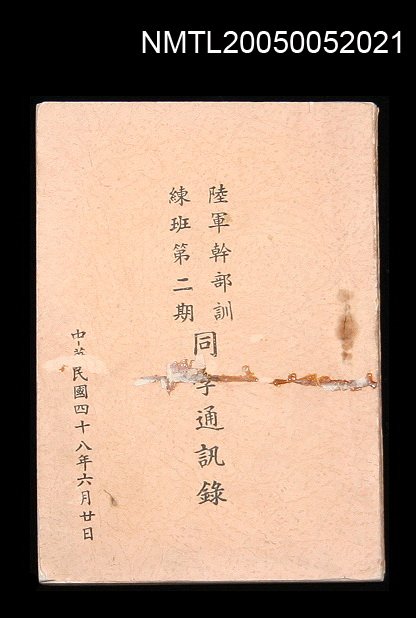 NMTL20050052021
陸軍幹部訓
練班第二期
同學通訊錄
中華民國四十八年六月廿日